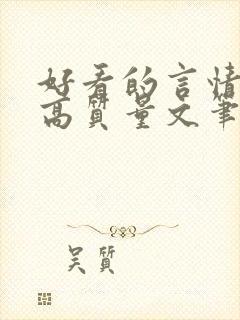 好看的言情
高质量文笔
吴质